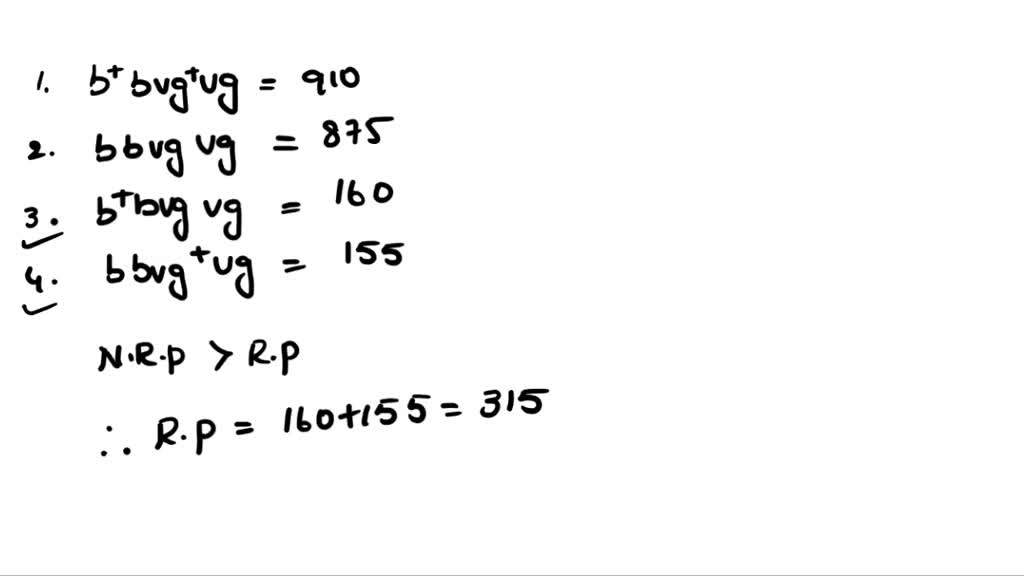 1. b⁺bvg⁺vg = 910
2. bbvg vg = 875
3. b⁺bvg vg = 160
4. bbvg⁺vg = 155
N.R.p > R.p
∴ R.p = 160+155 = 315